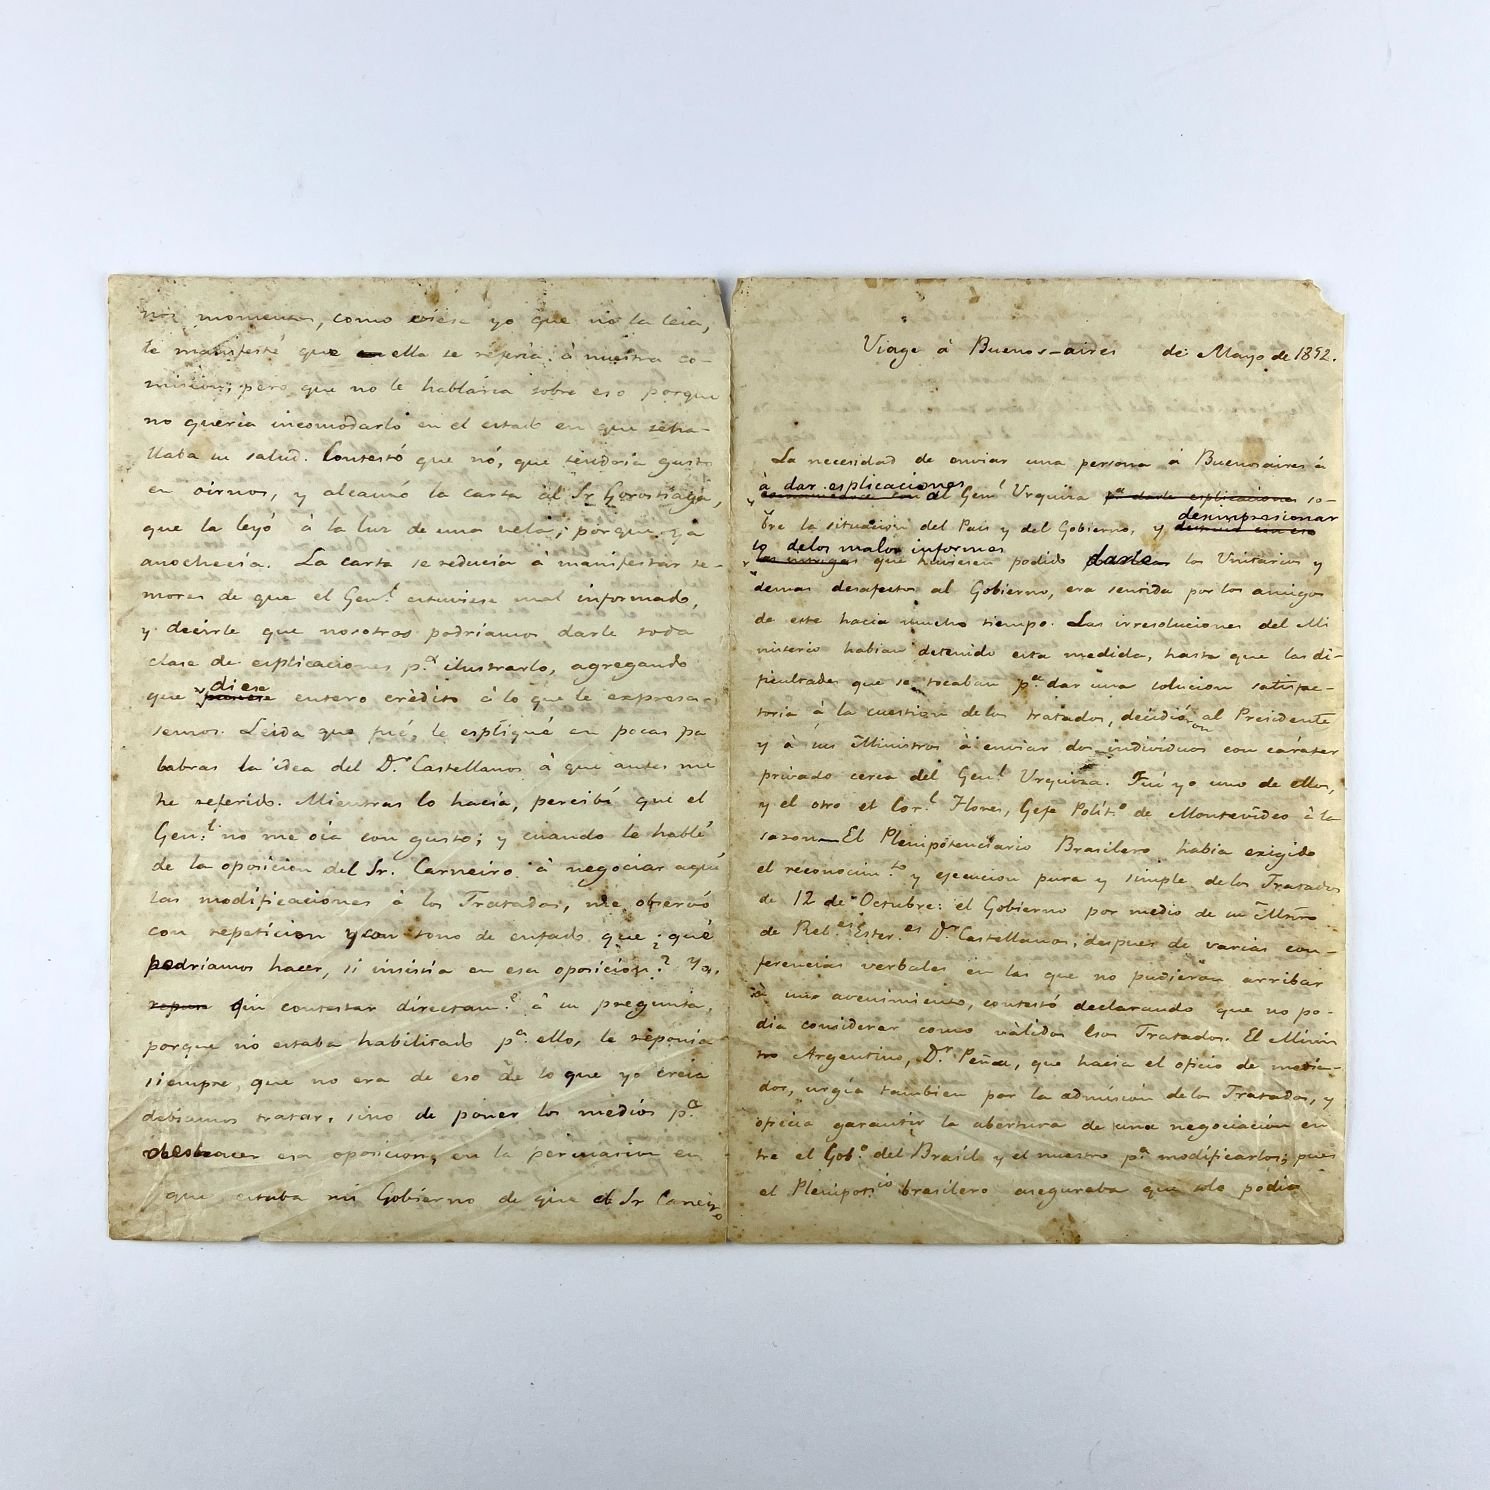 nos momentos, como viese yo que no la leia,
le manifesté que en ella se referia à nuestra co-
mision; pero que no le hablaria sobre eso porque
no queria incomodarlo en el estado en que se ha-
llaba su salud. Contestó que nó, que tendria gusto
en oirnos, y alcanzó la carta al Sr. Gorostiaga,
que la leyó à la luz de una vela; porque ya
anochecia. La carta se reducia à manifestar te-
mores de que el Gen.l estuviese mal informado,
y decirle que nosotros podriamos darle toda
clase de esplicaciones p.a ilustrarlo, agregando
que diese entero crédito à lo que le expresa-
semos. Leida que fué, le espliqué en pocas pa
labras la idea del D.r Castellanos à que antes me
he referido. Mientras lo hacia, percibí que el
Gen.l no me oia con gusto; y cuando le hablé
de la oposicion del Sr. Carneiro à negociar aquí
las modificaciones à los Tratados, me observó
con repeticion y con tono de enfado que ¿qué
podriamos hacer, si insistia en esa oposicion? Yo,
sin contestar directam.e à su pregunta,
porque no estaba habilitado p.a ello, le reponia
siempre, que no era de eso de lo que yo creia
debiamos tratar, sino de poner los medios p.a
deshacer esa oposicion, en la persuasion en
que estaba mi Gobierno de que el Sr Carneiro
Viage à Buenos-aires de Mayo de 1852.
La necesidad de enviar una persona à Buenosaires à
à dar esplicaciones al Gen.l Urquiza p.a darle esplicaciones so-
bre la situacion del Pais y del Gobierno, y desimpresionar
lo de los malos informes que hubiesen podido darle los Unitarios y
demas desafectos al Gobierno, era sentida por los amigos
de este hacia mucho tiempo. Las irresoluciones del Mi
nisterio habian detenido esta medida, hasta que las di-
ficultades que se tocaban p.a dar una solucion satisfac-
toria à la cuestion de los tratados, decidieron al Presidente
y à sus Ministros à enviar dos individuos con carácter
privado cerca del Gen.l Urquiza. Fui yo uno de ellos,
y el otro el Cor.l Flores, Gefe Polít.o de Montevideo à la
sazon — El Plenipotenciario Brasilero habia exigido
el reconocim.to y ejecucion pura y simple de los Tratados
de 12 de Octubre: el Gobierno por medio de su Mtro
de Rel.es Ester.es D.r Castellanos, despues de varias con-
ferencias verbales en las que no pudieron arribar
à un avenimiento, contestó declarando que no po-
dia considerar como válidos esos Tratados. El Minis
tro Argentino, D.r Peña, que hacia el oficio de media-
dor, urgia tambien por la admision de los Tratados, y
ofrecia garantir la abertura de una negociacion en
tre el Gob.o del Brasil y el nuestro p.a modificarlos; pues
el Plenipot.io brasilero aseguraba que solo podia